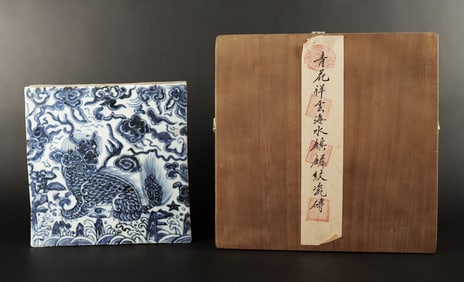 青花祥雲海水麒麟紋瓷磚